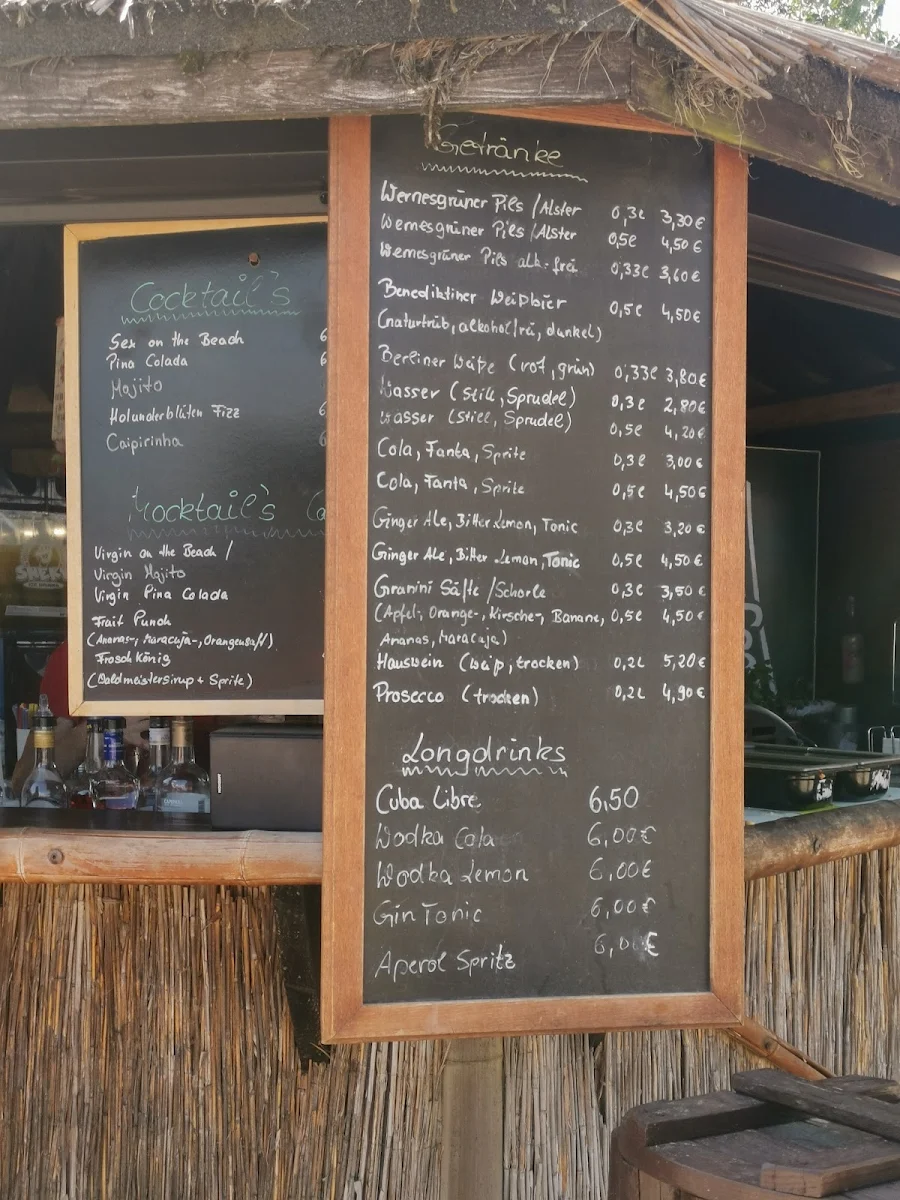 Cocktail's
Sex on the Beach 6
Pina Colada 6
Mojito
Holunderblüten Fizz 6
Caipirinha 6
Mocktail's
Virgin on the Beach /
Virgin Mojito
Virgin Pina Colada
Fruit Punch
(Ananas-, Maracuja-, Orangensaft)
Frosch König
(Waldmeistersirup + Sprite)
Getränke
Wernesgrüner Pils /Alster 0,3l 3,30€
Wernesgrüner Pils /Alster 0,5l 4,50€
Wernesgrüner Pils alk. frei 0,33l 3,60€
Benediktiner Weißbier 0,5l 4,50€
(naturtrüb, alkoholfrei, dunkel)
Berliner Weiße (rot, grün) 0,33l 3,80€
Wasser (Still, Sprudel) 0,3l 2,80€
Wasser (Still, Sprudel) 0,5l 4,20€
Cola, Fanta, Sprite 0,3l 3,00€
Cola, Fanta, Sprite 0,5l 4,50€
Ginger Ale, Bitter Lemon, Tonic 0,3l 3,20€
Ginger Ale, Bitter Lemon, Tonic 0,5l 4,50€
Granini Säfte /Schorle 0,3l 3,50€
(Apfel-, Orange-, Kirsche-, Banane, 0,5l 4,50€
Ananas, Maracuja)
Hauswein (weiß, trocken) 0,2l 5,20€
Prosecco (trocken) 0,2l 4,90€
Longdrinks
Cuba Libre 6,50
Wodka Cola 6,00€
Wodka Lemon 6,00€
Gin Tonic 6,00€
Aperol Spritz 6,00€